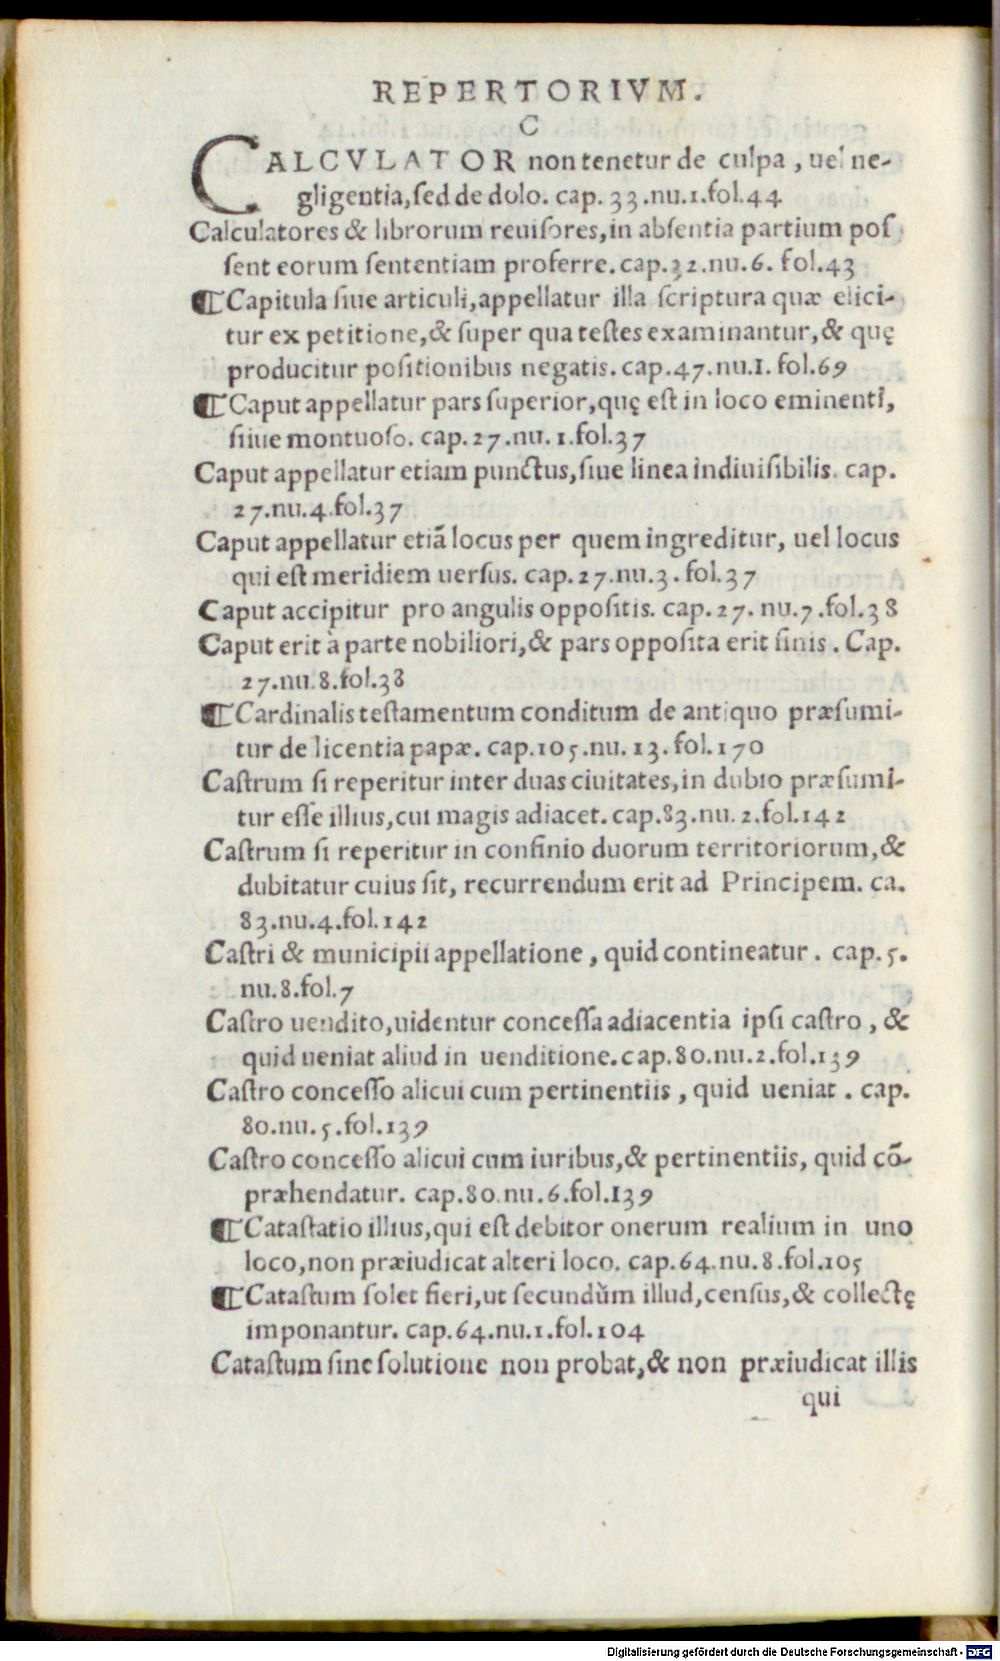 REPERTORIVM.
C
CALCVLATOR non tenetur de culpa, uel ne-
gligentia, ſed de dolo. cap. 33.nu.1.fol.44
Calculatores & librorum reuiſores, in abſentia partium poſ
ſent eorum ſententiam proferre. cap.32.nu.6. fol.43
¶Capitula ſiue articuli, appellatur illa ſcriptura quæ elici-
tur ex petitione, & ſuper qua teſtes examinantur, & quę
producitur poſitionibus negatis. cap.47.nu.1. fol.69
¶Caput appellatur pars ſuperior, quę eſt in loco eminenti,
ſiiue montuoſo. cap.27.nu.1.fol.37
Caput appellatur etiam punctus, ſiue linea indiuiſibilis. cap.
27.nu.4.fol.37
Caput appellatur etiā locus per quem ingreditur, uel locus
qui eſt meridiem uerſus. cap.27.nu.3.fol.37
Caput accipitur pro angulis oppoſitis. cap.27.nu.7.fol.38
Caput erit à parte nobiliori, & pars oppoſita erit finis. Cap.
27.nu.8.fol.38
¶Cardinalis teſtamentum conditum de antiquo præſumi-
tur de licentia papæ. cap.105.nu.13.fol.170
Caſtrum ſi reperitur inter duas ciuitates, in dubio præſumi-
tur eſſe illius, cui magis adiacet. cap.83.nu.2.fol.142
Caſtrum ſi reperitur in confinio duorum territoriorum, &
dubitatur cuius ſit, recurrendum erit ad Principem. ca.
83.nu.4.fol.142
Caſtri & municipii appellatione, quid contineatur. cap.5.
nu.8.fol.7
Caſtro uendito, uidentur conceſſa adiacentia ipſi caſtro, &
quid ueniat aliud in uenditione. cap.80.nu.2.fol.139
Caſtro conceſſo alicui cum pertinentiis, quid ueniat. cap.
80.nu.5.fol.139
Caſtro conceſſo alicui cum iuribus, & pertinentiis, quid cō-
præhendatur. cap.80.nu.6.fol.139
¶Cataſtatio illius, qui eſt debitor onerum realium in uno
loco, non præiudicat alteri loco. cap.64.nu.8.fol.105
¶Cataſtum ſolet fieri, ut ſecundùm illud, cenſus, & collectę
imponantur. cap.64.nu.1.fol.104
Cataſtum ſine ſolutione non probat, & non præiudicat illis
qui
Digitalisierung gefördert durch die Deutsche Forschungsgemeinschaft - DFG